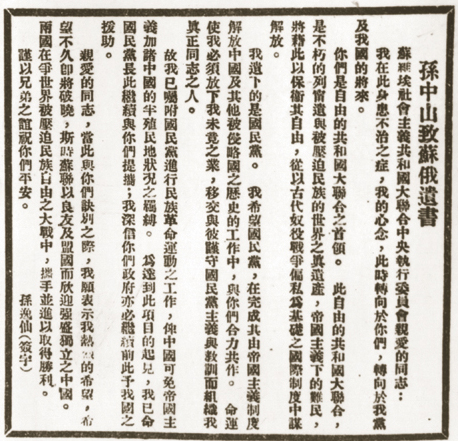 孫中山致蘇俄遺書
蘇維埃社會主義共和國大聯合中央執行委員會親愛的同志：
我在此身患不治之症，我的心念，此時轉向於你們，轉向於我黨
及我國的將來。
你們是自由的共和國大聯合之首領。此自由的共和國大聯合，
是不朽的列甯遺與被壓迫民族的世界之眞遺產，帝國主義下的難民，
將藉此以保衛其自由，從以古代奴役戰爭偏私爲基礎之國際制度中謀
解放。
我遺下的是國民黨。我希望國民黨，在完成其由帝國主義制度
解放中國及其他被侵略國之歷史的工作中，與你們合力共作。命運
使我必須放下我未竟之業，移交與彼謹守國民黨主義與敎訓而組織我
眞正同志之人。
故我已囑咐國民黨進行民族革命運動之工作，俾中國可免帝國主
義加諸中國的半殖民地狀況之羈縛。爲達到此項目的起見，我已命
國民黨長此繼續與你們提攜；我深信你們政府亦必繼續前此予我國之
援助。
親愛的同志，當此與你們訣別之際，我願表示我熱烈的希望，希
望不久卽將破曉，斯時蘇聯以良友及盟國而欣迎强盛獨立之中國。
兩國在爭世界被壓迫民族自由之大戰中，攜手並進以取得勝利。
謹以兄弟之誼祝你們平安。
孫逸仙（簽字）